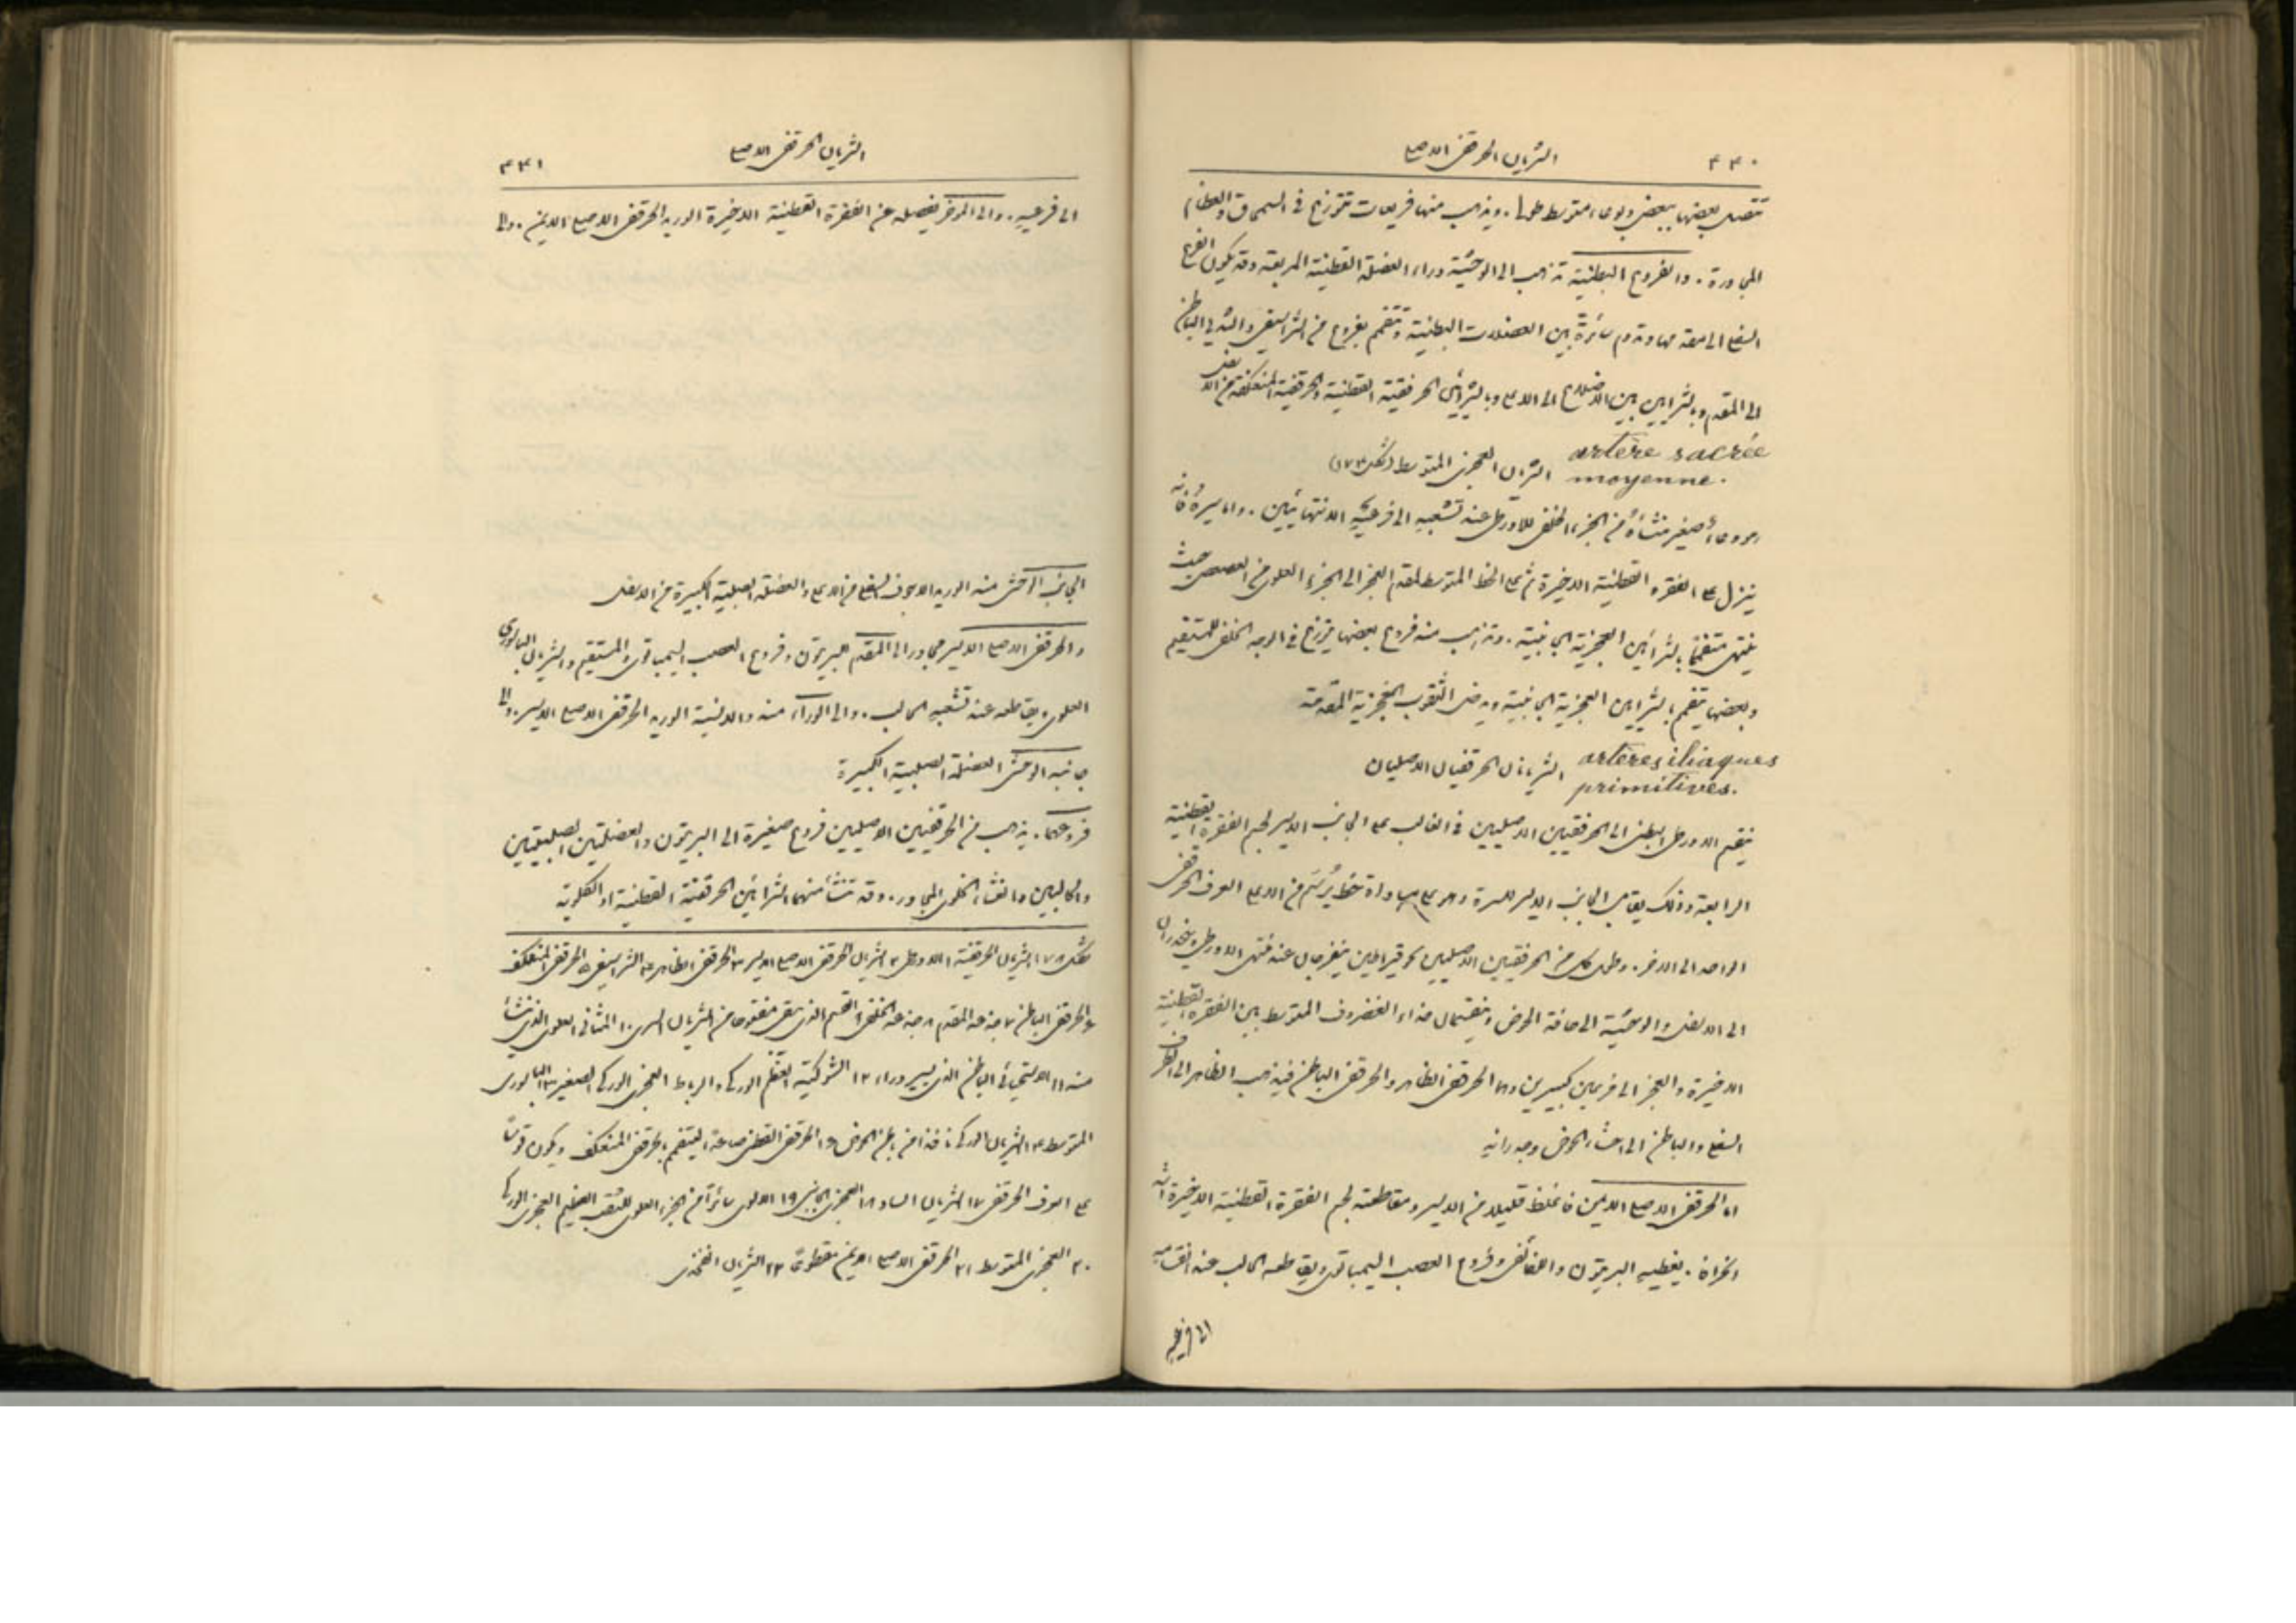 ٤٤٠ الشريان الحرقفي الاصلي
تتصل بعضها ببعض وبوعاء متوسط طولي. ويذهب منها فريعات تتوزع في السمحاق والعظام
المجاورة. والفروع البطنية تذهب الى الوحشية وراء العضلة القطنية المربعة وقد يكون الفرع
السفلي الى مقدمها وتدوم سائرة بين العضلات البطنية وتتفمم بفروع من الشراسيفي والثديي الباطن
الى المقدم وبالشرايين بين الاضلاع الى الاعلى وبالشرايين الحرقفية القطنية والحرقفية المنعكفة من الاسفل
artère sacrée
moyenne. الشريان العجزي المتوسط (شكل ١٧٣)
هو وعاء صغير منشأه من الجزء الخلفي للاورطي عند تشعبه الى فرعيه الانتهائيين. واما سيره فانه
ينزل على الفقرة القطنية الاخيرة ثم على الخط المتوسط لمقدم العجز الى الجزء العلوي من العصعص حيث
ينتهي متفمماً بالشرايين العجزية الجانبية. وتذهب منه فروع بعضها يتوزع في الوجه الخلفي للمستقيم
وبعضها يتفمم بالشرايين العجزية الجانبية ويدخل الثقوب العجزية المقدمة
artères iliaques
primitives. الشريانان الحرقفيان الاصليان
ينقسم الاورطي البطني الى الحرقفيين الاصليين في الغالب على الجانب الايسر لجسم الفقرة القطنية
الرابعة وذلك يقابل الجانب الايسر للسرة وهو على مساواة خط يُرسَم من اعلى العرف الحرقفي
الواحد الى الاخر. وطول كل من الحرقفيين الاصليين نحو قيراطين ينفرجان عند منتهى الاورطي وينحدران
الى الاسفل والوحشية الى حافة الحوض وينقسمان حذاء الغضروف المتوسط بين الفقرة القطنية
الاخيرة والعجز الى فرعين كبيرين وهما الحرقفي الظاهر والحرقفي الباطن فيذهب الظاهر الى الطرف
السفلي والباطن الى احشاء الحوض وجدرانه
اما الحرقفي الاصلي الايمن فاغلظ قليلاً من الايسر ومقاطعته لجسم الفقرة القطنية الاخيرة اشد
انحرافاً. يغطيه البريتون واللفائفي وفروع العصب السيمباتوي ويقاطعه الحالب عند انقسامه
الى فرعيه
الشريان الحرقفي الاصلي ٤٤١
الى فرعيه. والى المؤخر يفصله عن الفقرة القطنية الاخيرة الوريد الحرقفي الاصلي الايمن. والى
الجانب الوحشي منه الوريد الاجوف السفلي من الاعلى والعضلة الصلبية الكبيرة من الاسفل
والحرقفي الاصلي الايسر مجاور الى المقدم البريتون وفروع العصب السيمباتوي والمستقيم والشريان الباسوري
العلوي ويقاطعه عند تشعبه الحالب. والى الوراء منه والانسية الوريد الحرقفي الاصلي الايسر. والى
جانبه الوحشي العضلة الصلبية الكبيرة
فروعهما. يذهب من الحرقفيين الاصليين فروع صغيرة الى البريتون والعضلتين الصلبيتين
والحالبين والنشاء الخلوي المجاور. وقد تنشأ منهما الشرايين الحرقفية القطنية او الكلوية
شكل ١٧٨ الشرايين الحرقفية ١ الاورطي ٢ الشريان الحرقفي الاصلي الايسر ٣ الحرقفي الظاهر ٤ الشراسيفي ٥ الحرقفي المنعكف
٦ الحرقفي الباطن ٧ جذعه المقدم ٨ جذعه الخلفي ٩ القسم الذي بقي مفتوحاً من الشريان السري ١٠ المثاني العلوي الذي ينشأ
منه ١١ الاستحيائي الباطن الذي يسير وراء ١٢ الشوكية للعظم الوركي والرباط العجزي الوركي الصغير ١٣ الباسوري
المتوسط ١٤ الشريان الوركي نافذاً من باطن الحوض ١٥ الحرقفي القطني صاعداً ليتفمم بالحرقفي المنعكف ويكون قوساً
على العرف الحرقفي ١٧ الشريان الساد ١٨ العجزي الجانبي ١٩ الالوي سائراً من الجزء العلوي للثقب العظيم العجزي الوركي
٢٠ العجزي المتوسط ٢١ الحرقفي الاصلي الايمن مقطوعاً ٢٢ الشريان الفخذي